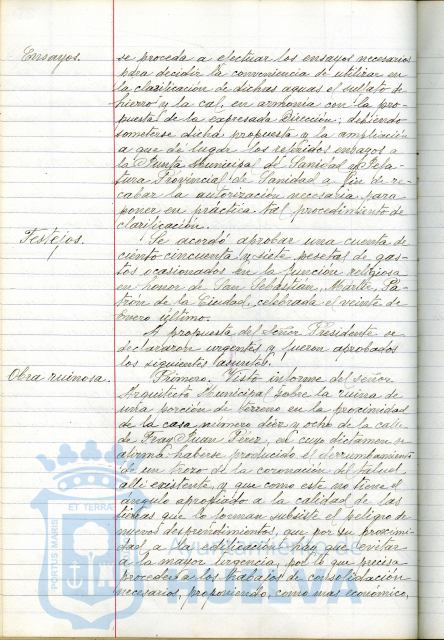 Ensayos.
se proceda a efectuar los ensayos necesarios
para decidir la conveniencia de utilizar en
la clarificación de dichas aguas el sulfato de
hierro y la cal, en armonía con la pro-
puesta de la expresada Dirección; debiendo
someterse dicha propuesta y la ampliación
a que dé lugar los referidos ensayos a
la Junta Municipal de Sanidad y Jefa-
tura Provincial de Sanidad a fin de re-
cabar la autorización necesaria para
poner en práctica tal procedimiento de
clarificación.
Festejos.
Se acordó aprobar una cuenta de
ciento cincuenta y siete pesetas de gas-
tos ocasionados en la función religiosa
en honor de San Sebastián, Mártir, Pa-
trón de la Ciudad, celebrada el veinte de
Enero último.
A propuesta del Señor Presidente se
declararon urgentes y fueron aprobados
los siguientes asuntos.
Obra ruinosa.
Primero. Visto informe del señor
Arquitecto Municipal sobre la ruina de
una porción de terreno en la proximidad
de la casa número diez y ocho de la calle
de Fray Juan Pérez, en cuyo dictamen se
afirma haberse producido el derrumbamiento
de un trozo de la coronación del talud
allí existente, y que como este no tiene el
ángulo apropiado a la calidad de las
tierras que lo forman subsiste el peligro de
nuevos desprendimientos, que por su proximi-
dad a la edificación hay que evitar
a la mayor urgencia, por lo que precisa
proceder a los trabajos de consolidación
necesarios, proponiendo, como mas económico,
PORTUS MARIS
ET TERRAE
HUELVA